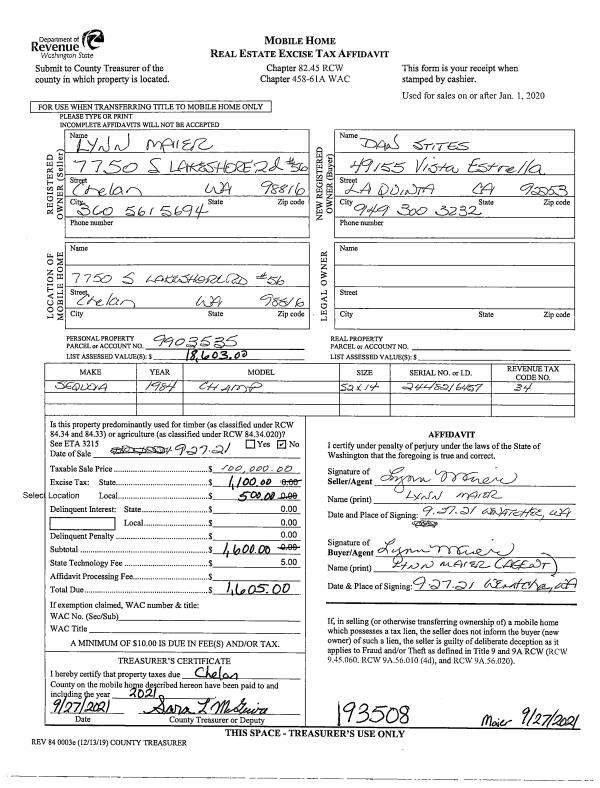 Department of
Revenue
Washington State
Submit to County Treasurer of the
county in which property is located.
MOBILE HOME
REAL ESTATE EXCISE TAX AFFIDAVIT
Chapter 82.45 RCW
Chapter 458-61A WAC
This form is your receipt when
stamped by cashier.
Used for sales on or after Jan. 1, 2020
FOR USE WHEN TRANSFERRING TITLE TO MOBILE HOME ONLY
PLEASE TYPE OR PRINT
INCOMPLETE AFFIDAVITS WILL NOT BE ACCEPTED
REGISTERED
OWNER (Seller)
Name
LYNN MAIER
7750 S LAKESHORE Rd #56
Street
Chelan WA 98816
City State Zip code
360 561 5694
Phone number
NEW REGISTERED
OWNER (Buyer)
Name
DAN STITES
49155 Vista Estrella
Street
LA QUINTA CA 92253
City State Zip code
949 300 3232
Phone number
LOCATION OF
MOBILE HOME
Name
7750 S LAKESHORE RD #56
Street
Chelan WA 98816
City State Zip code
LEGAL OWNER
Name
Street
City State Zip code
PERSONAL PROPERTY
PARCEL or ACCOUNT NO. 9903535
LIST ASSESSED VALUE(S): $ 18,603.00
REAL PROPERTY
PARCEL or ACCOUNT NO.
LIST ASSESSED VALUE(S): $
MAKE YEAR MODEL SIZE SERIAL NO. or I.D. REVENUE TAX CODE NO.
SEQUOIA 1984 CHAMP 52X14 34
Is this property predominantly used for timber (as classified under RCW
84.34 and 84.33) or agriculture (as classified under RCW 84.34.020)?
See ETA 3215 Yes ✓ No
Date of Sale 9-27-21
Taxable Sale Price $ 100,000.00
Excise Tax: State $ 1,100.00 0.00
Select Location Local $ 500.00 0.00
Delinquent Interest: State $ 0.00
Local $ 0.00
Delinquent Penalty $ 0.00
Subtotal $ 1,600.00 0.00
State Technology Fee $ 5.00
Affidavit Processing Fee $
Total Due $ 1,605.00
If exemption claimed, WAC number & title:
WAC No. (Sec/Sub)
WAC Title
A MINIMUM OF $10.00 IS DUE IN FEE(S) AND/OR TAX.
TREASURER'S CERTIFICATE
I hereby certify that property taxes due Chelan
County on the mobile home described hereon have been paid to and
including the year 2021
9/27/2021 Sara L McGuire
Date County Treasurer or Deputy
AFFIDAVIT
I certify under penalty of perjury under the laws of the State of
Washington that the foregoing is true and correct.
Signature of
Seller/Agent Lynn Maier
Name (print) LYNN MAIER
Date and Place of Signing: 9.27.21 WENATCHEE, WA
Signature of
Buyer/Agent Lynn Maier
Name (print) LYNN MAIER (AGENT)
Date & Place of Signing: 9-27-21 WENATCHEE, WA
If, in selling (or otherwise transferring ownership of) a mobile home
which possesses a tax lien, the seller does not inform the buyer (new
owner) of such a lien, the seller is guilty of deliberate deception as it
applies to Fraud and/or Theft as defined in Title 9 and 9A RCW (RCW
9.45.060. RCW 9A.56.010 (4d), and RCW 9A.56.020).
193508 Maier 9/27/2021
THIS SPACE - TREASURER'S USE ONLY
REV 84 0003e (12/13/19) COUNTY TREASURER